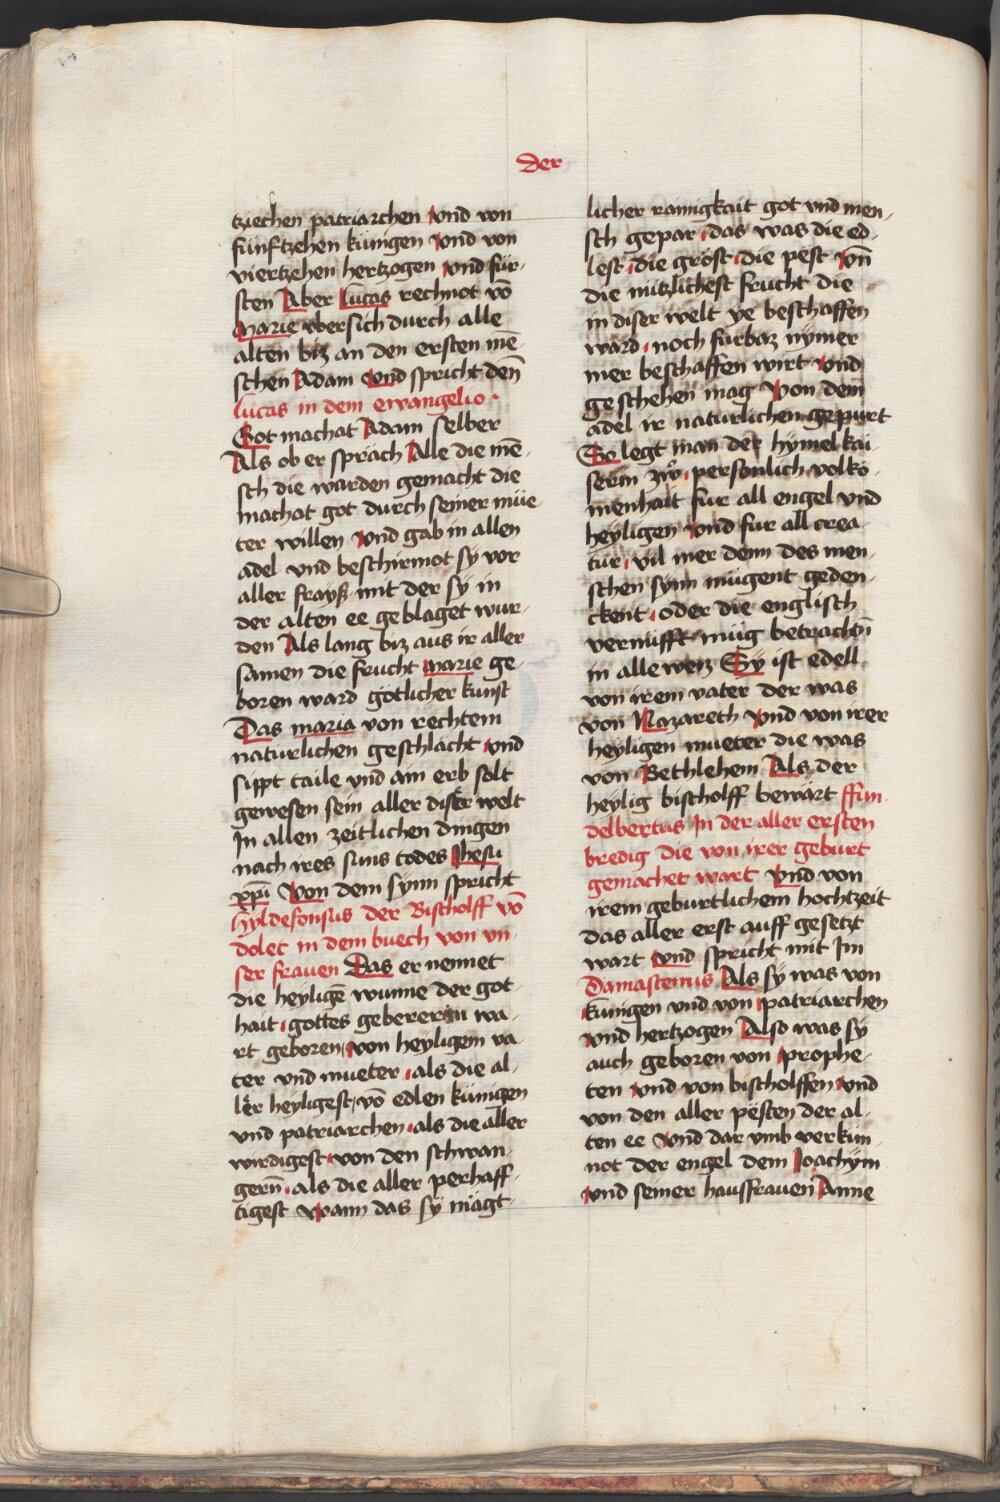 der
tziechen patriarchen vnd von
fünftzehen künigen vnd von
viertzehen hertzogen vnd für-
sten Aber Lucas rechnot vō
Marie vbersich durch alle
alten biz an den ersten mē-
schen Adam Vnd spricht den̄
lucas in dem ewangelio ·
Got machat Adam selber
Als ob er sprach Alle die mē-
sch die wurden gemacht die
machat got durch seiner müe-
ter willen vnd gab in allen
adel vnd beschirmot sy vor
aller frayß mit der sÿ in
der alten ee geblaget wur-
den Als lang biz aus ir aller
samen die frucht marie ge-
boren ward götlicher kunst
Das maria von rechtem
naturlichen geschlächt vnd
sippt taile vnd ain erb solt
gewesen sein aller diser welt
In allen zeitlichen dingen
nach ires suns todes Jhesu
xpi̅ Von dem synn spricht
Hyldefonsus der Bischolff vō
dolet in dem buech von vn-
ser frauen Das er nennet
die heyligē wunne der got-
hait gottes gebererin wa-
rt geboren von heyligem va-
ter vnd mueter als die al-
ler heyligest vō edlen künigen
vnd patriarchen als die aller
wirdigest von den schwan-
gern̄ als die aller perhaff-
tigest Wann das sÿ mägt-
licher rainigkait got vnd men-
sch gepar das was die ed-
lest die gröst die pest vn̄
die nützlichest frucht die
in diser welt ye beschaffen
ward noch furbaz nymer
mer beschaffen wirt vnd
geschehen mag Von dem
adel ir naturlichen gepurt
So legt man der hymel kai-
serin zw personlich volko-
menhait fur all engel vnd
heyligen vnd fur all crea-
tur vil mer denn des men-
schen synn mügent geden-
ckent oder die englisch
vernufft müg betrachtn̄
in alle weiz Sÿ ist edell
von irem vater der was
von Nazareth vnd von irer
heyligen mueter die was
von Bethlehem Als der
heylig bischolff bewärt ffun-
delbertus In der aller ersten
bredig die von irer geburt
gemachet wart Vnd von
irem geburtlichem hochtzeit
das aller erst auff gesetzt
wart vnd spricht mit Im
Damascenus Als sÿ was von
künigen vnd von patriarchen
vnd hertzogen Also was sÿ
auch geboren von prophe-
ten vnd von bischolffen vnd
von den aller pesten der al-
ten ee Vnd dar vmb verkün-
not der engel dem Joachym
vnd seiner hausfrauen Anne